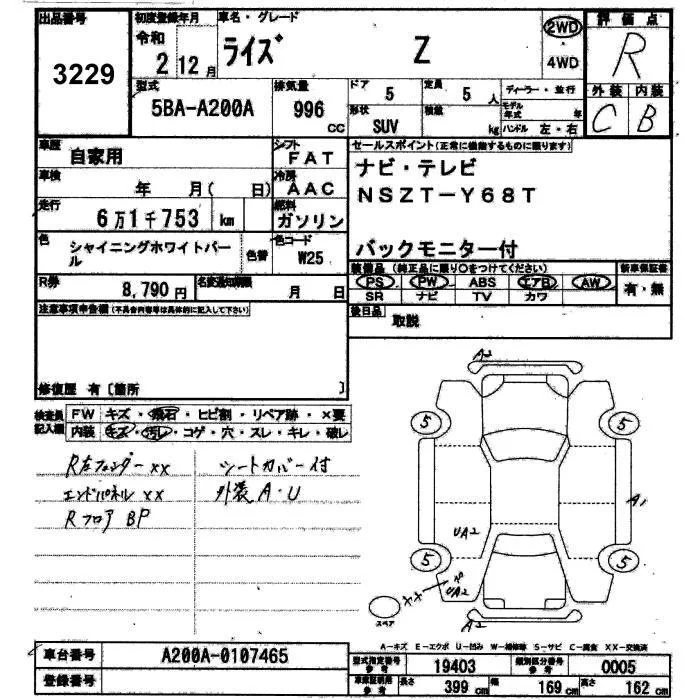 出品番号 初度登録年月 車名・グレード 評価点
3229 令和 2 12月 ライズ Z 2WD・4WD R
型式 排気量 ドア 定員 ディーラー・並行 外装 内装
5BA-A200A 996 CC 5 5人 モデル年式 年 C B
形状 積載
SUV kg ハンドル 左・右
車歴 自家用 シフト FAT セールスポイント(正常に機能するものに限ります)
車検 年 月( 日) 冷房 AAC ナビ・テレビ
走行 6万1千753 km 燃料 ガソリン NSZT-Y68T
色 シャイニングホワイトパール 色替 色コード W25 バックモニター付
R券 8,790円 名変通知期限 月 日
装備品(純正品に限り○をつけてください) 新車保証書
PS PW ABS エアB AW 有・無
SR ナビ TV カワ
注意事項申告欄(不具合内容等は具体的に記入して下さい)
後日品 取説
修復歴 有〔箇所 〕
検査員記入欄 FW キズ・飛石・ヒビ割・リペア跡・×要
内装 キズ・汚れ・コゲ・穴・スレ・キレ・破レ
R左フェンダーxx シートカバー付
エンドパネルxx 外装A・U
Rフロア BP
A2
5 5
A1
UA2
5 5
UA2
スペア
A2
A-キズ E-エクボ U-凹み W-補修跡 S-サビ C-腐食 XX-交換済
車台番号 A200A-0107465
登録番号
型式指定番号 参考 19403 類別区分番号 参考 0005
車庫証明用 参考 長さ 399 cm 幅 169 cm 高さ 162 cm